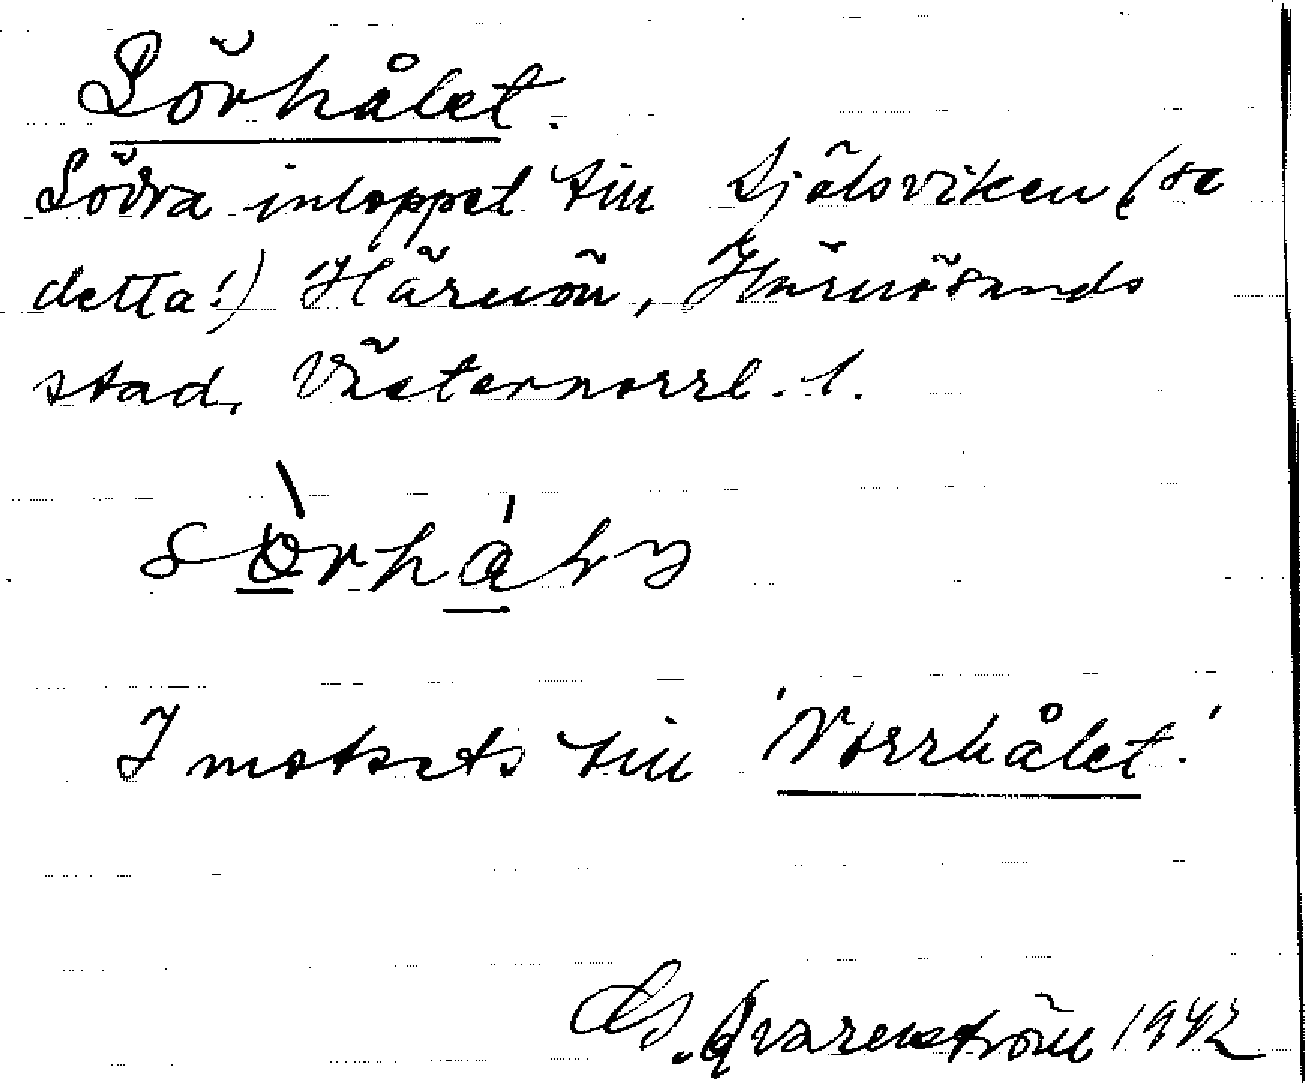 Sörhålet.
Södra inloppet till Själsviken (se
detta!) Härnön, Härnösands
stad, Västernorrl. l.
I motsats till 'Norrhålet.'
Qvarnström 1942